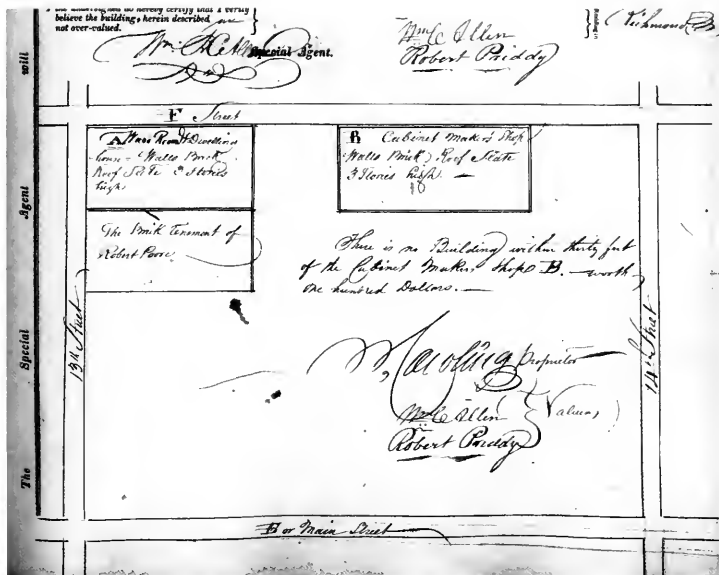 believe the buildings herein described
not over-valued.
Special Agent.
Wm C Allen
Robert Priddy
Richmond
will
Agent
Special
The
F Street
A Ware Room & Dwelling
house Walls Brick
Roof Slate 3 Stories
high
The Brick Tenement of
Robert Poore
B Cabinet Makers Shop
Walls Brick Roof Slate
3 Stories high
18
There is no Building within thirty feet
of the Cabinet Makers Shops B. worth
one hundred Dollars.
Proprietor
Wm C Allen
Robert Priddy
Valuers
13th Street
14th Street
E or Main Street